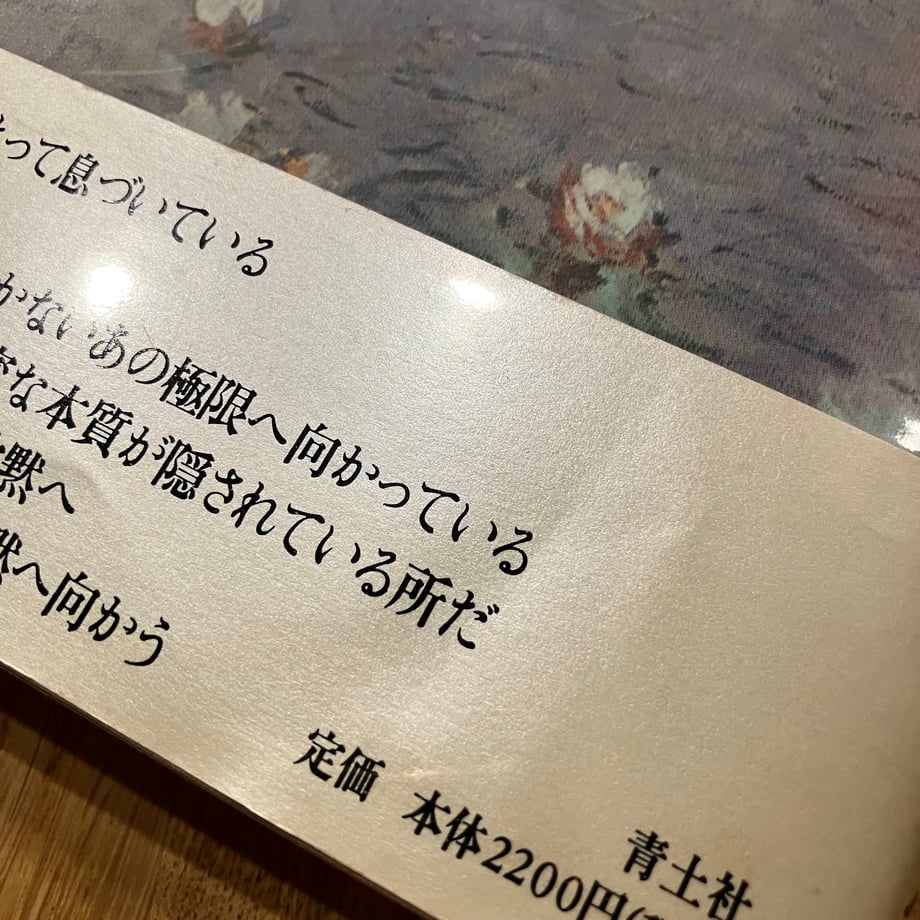 って息づいている
かないあの極限へ向かっている
な本質が隠されている所だ
黙へ
黙へ向かう
定価 本体2200円(
青土社